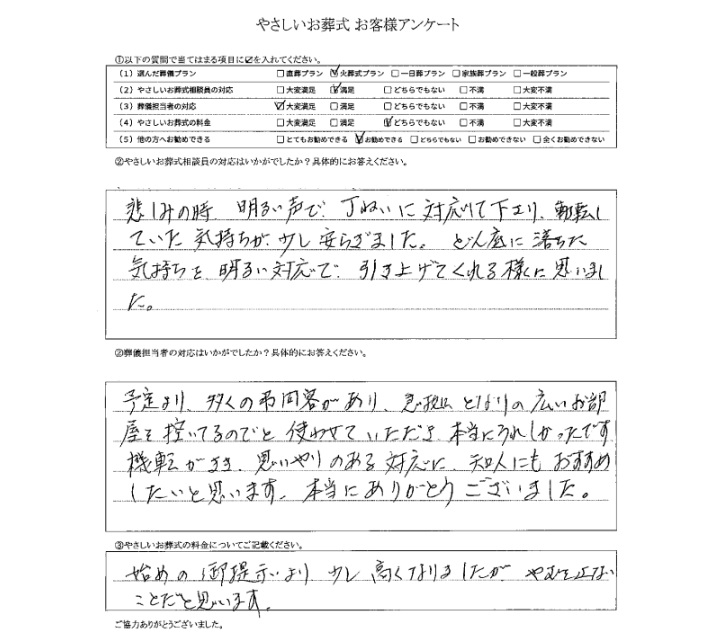 やさしいお葬式 お客様アンケート
①以下の質問で当てはまる項目に☑を入れてください。
（1）選んだ葬儀プラン □直葬プラン ☑火葬式プラン □一日葬プラン □家族葬プラン □一般葬プラン
（2）やさしいお葬式相談員の対応 □大変満足 ☑満足 □どちらでもない □不満 □大変不満
（3）葬儀担当者の対応 ☑大変満足 □満足 □どちらでもない □不満 □大変不満
（4）やさしいお葬式の料金 □大変満足 □満足 ☑どちらでもない □不満 □大変不満
（5）他の方へお勧めできる □とてもお勧めできる ☑お勧めできる □どちらでもない □お勧めできない □全くお勧めできない
②やさしいお葬式相談員の対応はいかがでしたか？具体的にお答えください。
悲しみの時、明るい声で、丁ねいに対応して下さり、動転し
ていた気持ちが、少し安らぎました。どん底に落ちた
気持ちを、明るい対応で、引き上げてくれる様に思いまし
た。
②葬儀担当者の対応はいかがでしたか？具体的にお答えください。
予定より、多くの弔問客があり、急拠 となりの広いお部
屋を控いてるのでと使わせていただき、本当にうれしかったです
機転がきき、思いやりのある対応に、知人にもおすすめ
したいと思います。本当にありがとうございました。
③やさしいお葬式の料金についてご記載ください。
始めの御提示より少し高くなりましたが、やむを止ない
ことだと思います。
ご協力ありがとうございました。